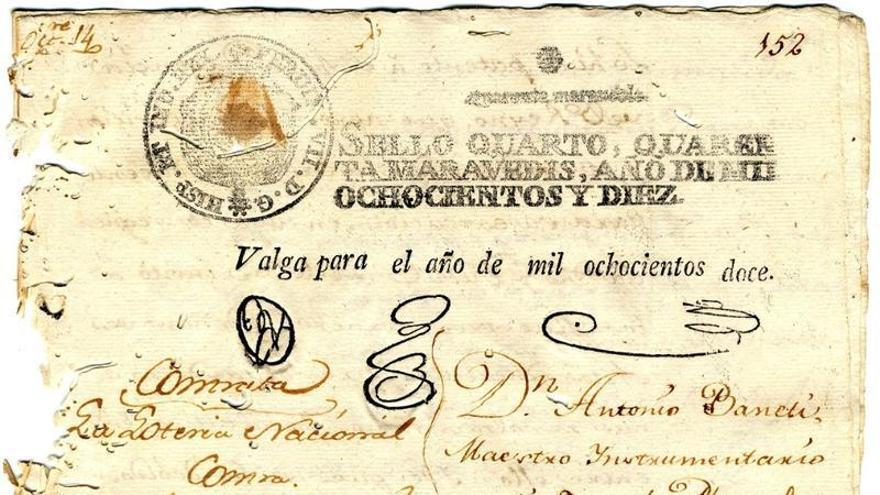 Oct.re 14
152
HISP. ET IND. REX
VII. D. G.
Quarenta maravedis.
SELLO QUARTO, QUAREN
TA MARAVEDIS, AÑO DE MIL
OCHOCIENTOS Y DIEZ.
Valga para el año de mil ochocientos doce.
Contrata
La Loteria Nacional
Contra.
Dn. Antonio Baneti.
Maestro Instrumentario